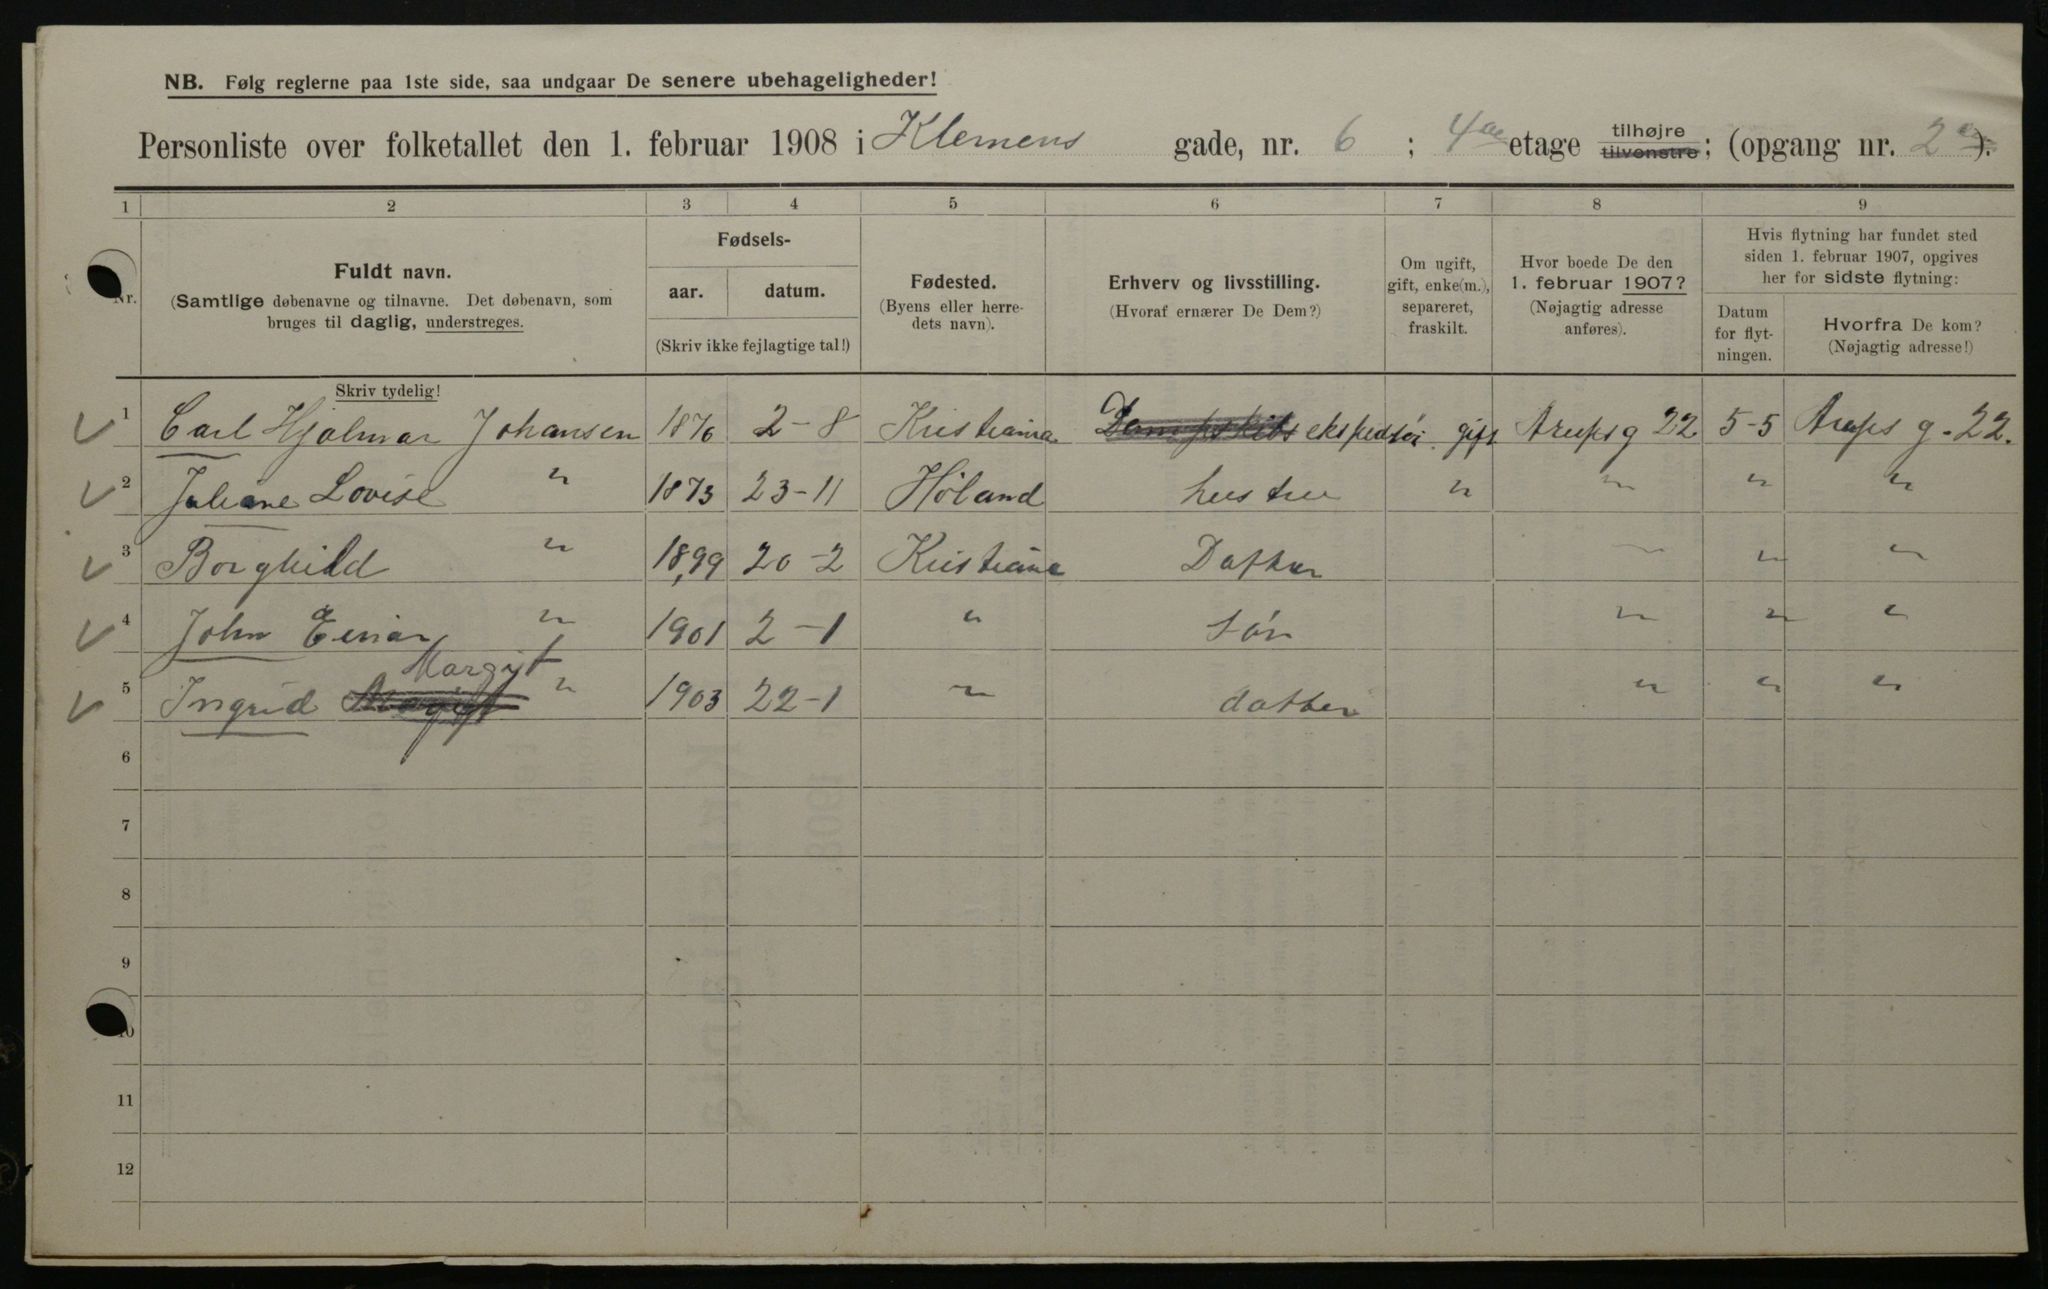 NB. Følg reglerne paa 1ste side, saa undgaar De senere ubehageligheder!
Personliste over folketallet den 1. februar 1908 i Klemens gade, nr. 6 ; 4de etage tilhøjre tilvenstre; (opgang nr. 2).
1 2 3 4 5 6 7 8 9
Nr.
Fuldt navn.
(Samtlige døbenavne og tilnavne. Det døbenavn, som
bruges til daglig, understreges.
Skriv tydelig!
Fødsels-
aar. datum.
(Skriv ikke fejlagtige tal!)
Fødested.
(Byens eller herre-
dets navn).
Erhverv og livsstilling.
(Hvoraf ernærer De Dem?)
Om ugift,
gift, enke(m.),
separeret,
fraskilt.
Hvor boede De den
1. februar 1907?
(Nøjagtig adresse
anføres).
Hvis flytning har fundet sted
siden 1. februar 1907, opgives
her for sidste flytning:
Datum
for flyt-
ningen.
Hvorfra De kom?
(Nøjagtig adresse!)
1 Carl Hjalmar Johansen 1876 2-8 Kristiania Dampskibs ekspeditør. gift Arupsg 22 5-5 Arups g. 22.
2 Juliane Lovise " 1873 23-11 Høland hustru " " " "
3 Borghild " 1899 20-2 Kristiania Datter " " "
4 John Einar " 1901 2-1 " Søn " " "
Margit
5 Ingrid Margit " 1903 22-1 " datter " " "
6
7
8
9
10
11
12